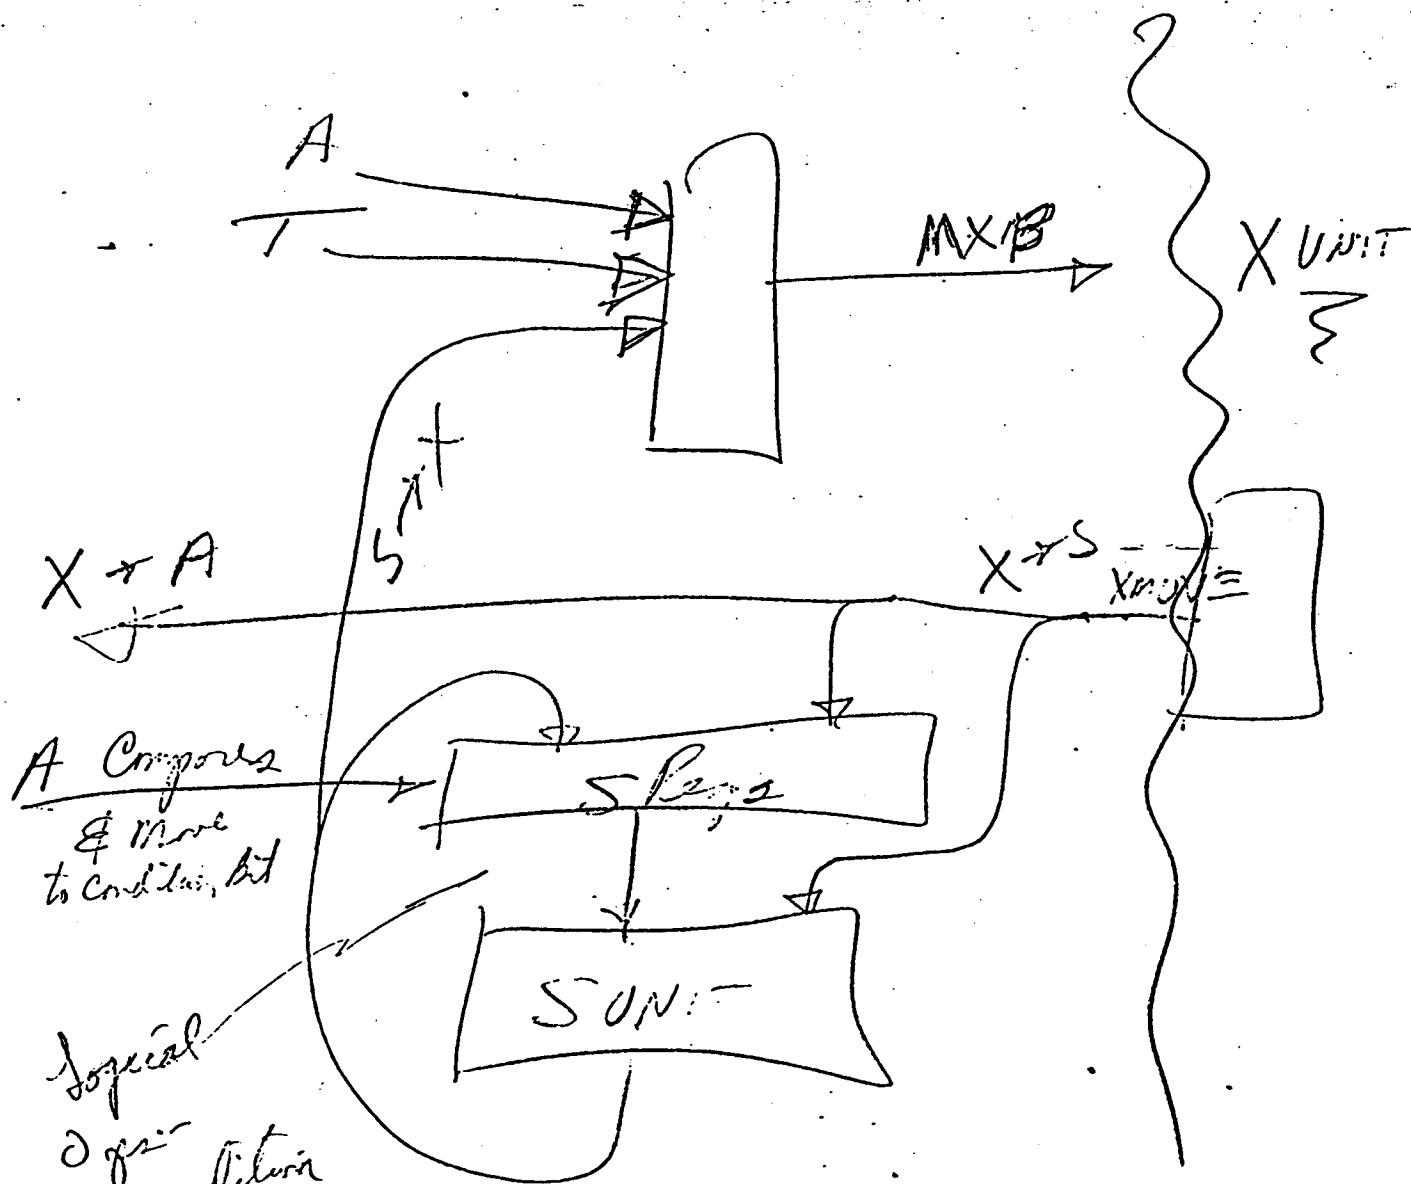 A
T
MXB
X UNIT
X → A
X → S
XMOVE
A Compares
& Move
to condition bit
S Regs
S UNIT
Logical
Ops